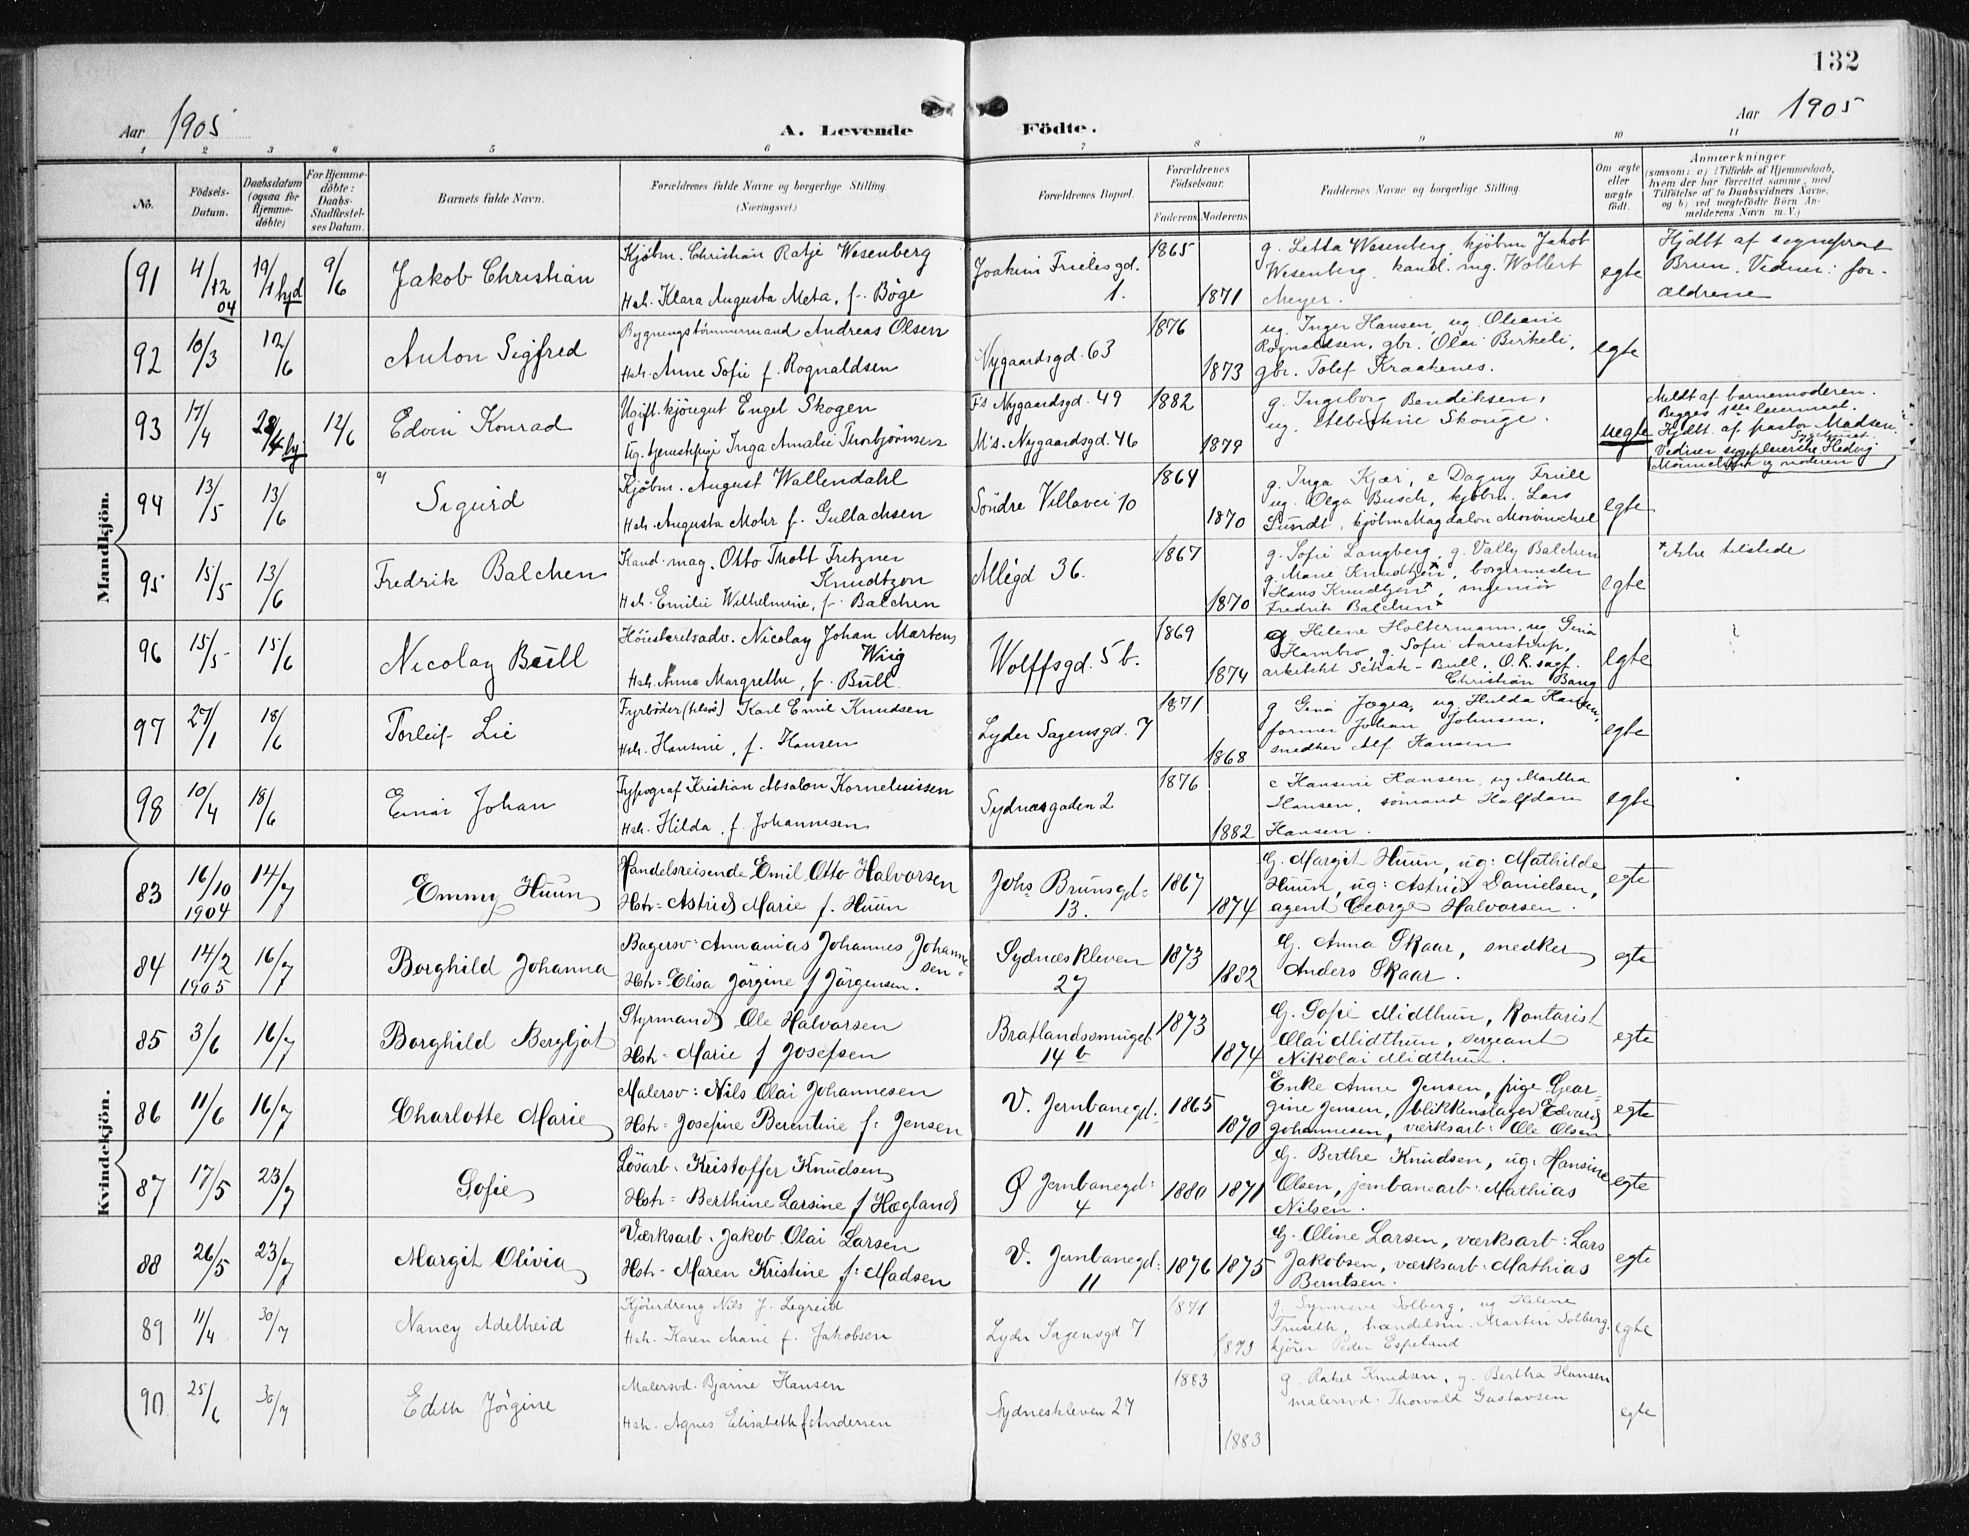 132
Aar 1905 A. Levende Födte. Aar 1905
1 2 3 4 5 6 7 8 9 10 11
No. Födsels-Datum. Daabsdatum (ogsaa for Hjemme-döbte) For Hjemme-döbte: Daabs-Stadfæstel-ses Datum. Barnets fulde Navn. Forældrenes fulde Navne og borgerlige Stilling. (Næringsvei.) Forældrenes Bopæl. Forældrenes Födselsaar. Faderens Moderens Faddernes Navne og borgerlig Stilling. Om ægte eller uægte födt. Anmærkninger
(saasom: a) i Tilfælde af Hjemmedaab,
hvem der har forrettet samme, med
Tilföielse af to Daabsvidners Navne,
og b) ved uægtefödte Börn An-
melderens Navn m. V.)
Mandkjön.
91 4/12 04 19/1 hjd 9/6 Jakob Christian
Kjöbm. Christian Ratje Wesenberg
Hst. Klara Augusta Meta, f. Böge
Joakim Frielesgd.
1.
1865 1871
g. Letta Wesenberg, kjöbm Jakob
Wesenberg, kand. mg. Wollert
Meyer.
egte
Hjdbt af sogneprest
Brun. Vidner: for-
ældrene
92 10/3 12/6 Anton Sigfred
Bygningstömmermand Andreas Olsen
Hst. Anne Sofie f. Rognaldsen
Nygaardsgd. 63
1876 1873
ug. Inger Hansen, ug. Oleanie
Rognaldsen, gbr. Olai Birkeli,
gbr. Tolef Kraakenes.
egte
93 17/4 28/4 hj 12/6 Edvin Konrad
Ugift. kjöregut Engel Skogen
Ug. tjenestepige Inga Amalie Thorbjörnsen
F's Nygaardsgd. 49
M's. Nygaardsgd. 46
1882 1879
g. Ingeborg Bendiksen,
ug. Albertine Skouge.
uegte
Meldt af barnemoderen.
Begges 1ste leiermaal.
Hjdbt. af pastor Madsen.
Sygehuset.
Vidner sygepleierske Hedvig
94 13/5 13/6 Sigurd
Kjöbm. August Wallendahl
Hst. Augusta Mohr f. Gullachsen
Söndre Villavei 10
1864 1870
g. Inga Kjær, e Dagny Friele
ug. Olga Busch, kjöbm. Lars
Sundt, kjöbm Magdalon
egte
95 15/5 13/6 Fredrik Balchen
Kand. mag. Otto Thott Fritzner
Knudtzon
Hst. Emilie Wilhelmine, f. Balchen
Allégd 36.
1867 1870
g. Sofie Langberg, g. Vally Balchen
g. Marie Knudtzon, borgermester
Hans Knudtzon, ingeniör
Fredrik Balchen
egte
ikke tilstede
96 15/5 15/6 Nicolay Bull
Höiesteretsadv. Nicolay Johan Martens
Wiig
Hst. Anna Margrethe, f. Bull
Wolffsgd. 5b.
1869 1874
g. Helene Holtermann, ug. Gina
Hambro, g. Sofie Aarestrup,
arkitekt Schak-Bull, O.R. sagf.
Christian Bang
egte
97 27/1 18/6 Torleif Lie
Fyrböder (tilsös) Karl Emil Knudsen
Hst. Hansine, f. Hansen
Lyder Sagensgd. 7
1871 1868
g Gina Jæger, ug. Hulda Hansen,
former Johan Johnsen,
snedker Alf Hansen
egte
98 10/4 18/6 Einar Johan
Typograf Kristian Absalon Korneliussen
Hst. Hilda, f. Johannesen
Sydnæsgaden 2
1876 1882
e Hansine Hansen, ug Martha
Hansen, sömand Halfdan
Hansen.
egte
Kvindekjön.
83 16/10 1904 14/7 Emmy Huun
Handelsreisende Emil Otto Halvorsen
Hstr. Astrid Marie f. Huun
Johs Brunsgd.
13.
1867 1874
G. Margit Huun, ug: Mathilde
Huun, ug: Astrid Danielsen,
agent George Halvorsen.
egte
84 14/2 1905 16/7 Borghild Johanna
Bagersv: Annanias Johannes Johanne-
sen.
Hstr. Elisa Jörgine f Jörgensen.
Sydnæskleven
27
1873 1882
G. Anna Skaar, snedker
Anders Skaar.
egte
85 3/6 16/7 Borghild Bergljot
Styrmand Ole Halvorsen
Hstr. Marie f Josefsen
Bratlandssmuget
14 b
1873 1874
G. Sofie Midthun, Kontorist
Olai Midthun, sergeant
Nikolai Midthun.
egte
86 11/6 16/7 Charlotte Marie
Malersv: Nils Olai Johannesen
Hstr. Josefine Berentine f: Jensen
V. Jernbanegd.
11
1865 1870
Enke Anne Jensen, pige Geor-
gine Jensen, blikkenslager Edvard
Johannesen, værksarb: Ole Olsen
egte
87 17/5 23/7 Sofie
Lösarb. Kristoffer Knudsen
Hstr. Berthine Larsine f Hægland
Ø Jernbanegd:
4
1880 1871
G. Berthe Knudsen, ug: Hansine
Olsen, jernbanearb: Mathias
Nilsen.
egte
88 26/5 23/7 Margit Olivia
Værksarb. Jakob Olai Larsen
Hstr. Maren Kristine f: Madsen
V. Jernbanegd:
11
1876 1875
G. Oline Larsen, værksarb: Lars
Jakobsen, værksarb. Mathias
Berntsen.
egte
89 11/4 30/7 Nancy Adelheid
Kjöredreng Nils J. Legreid
Hst. Karen Marie f. Jakobsen
Lyder Sagensgd 7
1871 1873
g. Synneve Solberg, ug Helene
Fruseth, handelsm. Martin Solberg,
kjörer Peder Espeland
egte
90 25/6 30/7 Edith Jörgine
Malersvd. Bjarne Hansen
Hst. Agnes Elisabeth f. Andersen
Sydneskleven 27
1883 1883
g. Rakel Knudsen, g. Bertha Hansen
malersvd. Thorvald Gustavsen
egte